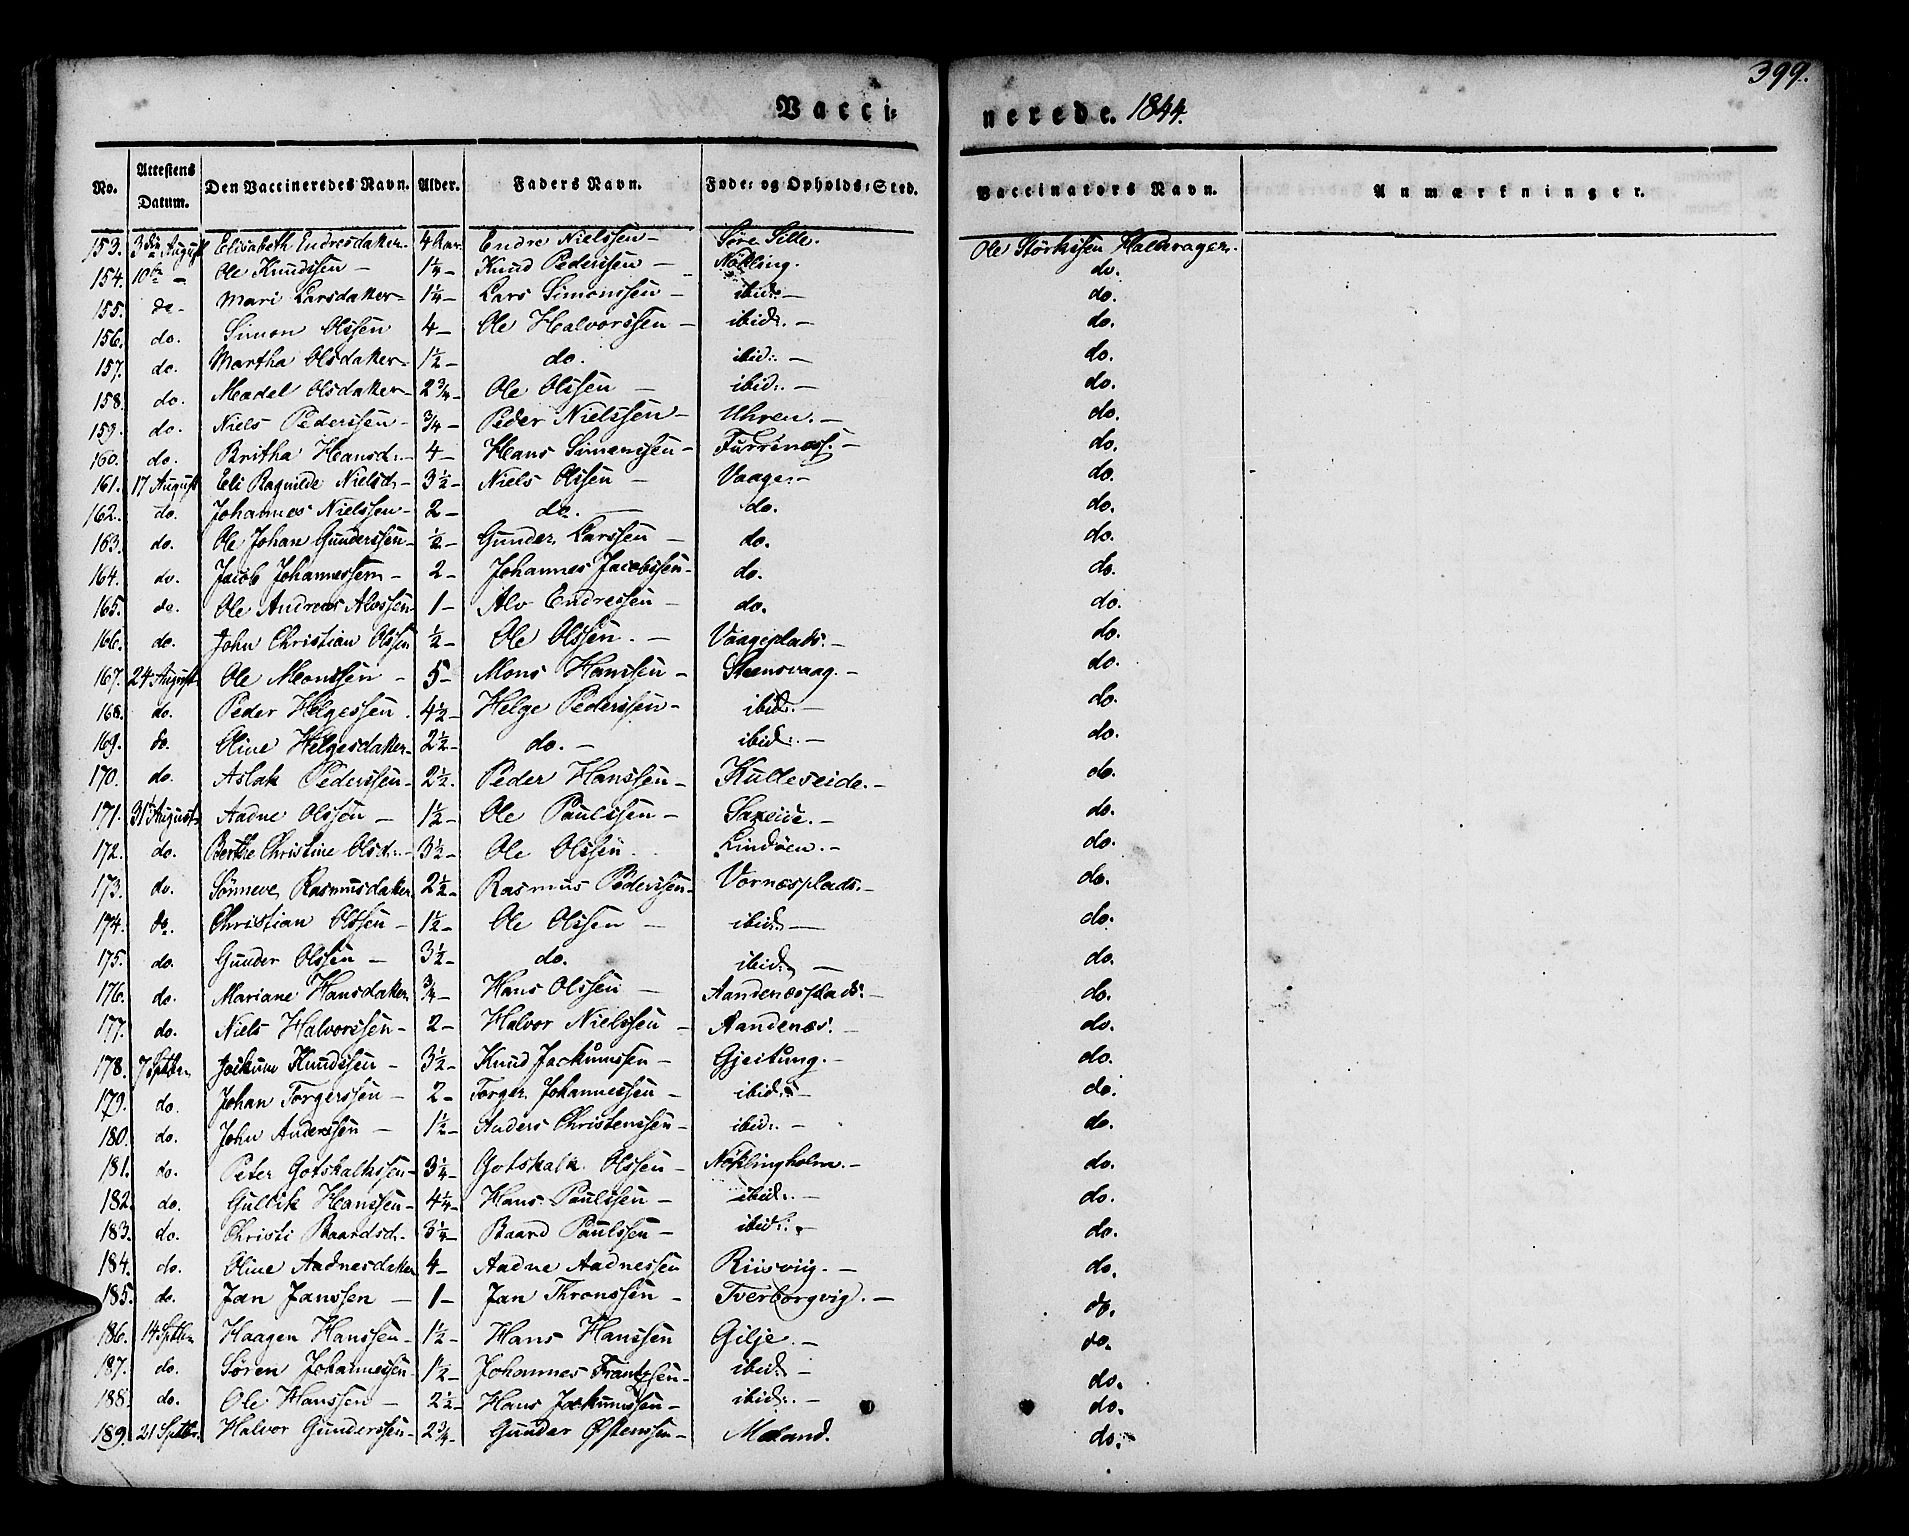 399.
Vacci=
nerede. 1844.
No. Attestens Datum. Den Vaccineredes Navn. Alder. Faders Navn. Føde= og Opholds=Sted. Vaccinators Navn. Anmærkninger.
153. 3die August Elisabeth Endresdatter 4 Aar Endre Nielssen – Søre Sille. Ole Størkssen Haldorager.
154. 10de – Ole Knudssen – 1¼ – Knud Pederssen – Nökling. do.
155. do – Mari Larsdatter – 1¼ – Lars Simonssen – ibid: – do.
156. do. Simon Olssen 4 – Ole Halvorssen – ibid: – do.
157. do. Martha Olsdatter – 1½ – do. ibid: – do.
158. do. Madel Olsdatter – 2¾ – Ole Olssen – ibid: – do.
159. do. Niels Pederssen – ¾ – Peder Nielssen – Uhren. – do.
160. do. Britha Hansd: – 4 – Hans Simonssen – Furrenæs. – do.
161. 17 August Eli Ragnilde Nielsd: – 3½ – Niels Olssen – Vaage. – do.
162. do. Johannes Nielssen – 2 – do. – do. do.
163. do. Ole Johan Gunderssen – ½ – Gunder Larssen – do. do.
164. do. Jacob Johannessen – 2 – Johannes Jacobssen – do. do.
165. do. Ole Andreas Alvssen 1 – Alv Endressen – do. do.
166. do. John Christian Olssen ½ – Ole Olssen. – Vaageplads. – do.
167. 24 August Ole Monssen – 5 – Mons Hanssen – Steensvaag. – do.
168. do. Peder Helgessen. 4½ – Helge Pederssen – ibid: – do.
169. do. Oline Helgesdatter 2½ – do. – ibid: – do.
170. do. Aslak Pederssen – 2½. Peder Hanssen – Kulleseide. – do.
171. 31 August Aadne Olssen – 1½ – Ole Paulssen – Saxeide. – do.
172. do. Berthe Christine Olsd: – 3½ – Ole Olssen. Lindöen. – do.
173. do. Sönneve Rasmusdatter 2½ – Rasmus Pederssen – Vornæsplads. – do.
174. do. Christian Olssen – 1½ – Ole Olssen – ibid: – do.
175. do. Gunder Olssen – 3½ – do. ibid: – do.
176. do. Mariane Hansdatter ¾ – Hans Olssen – Aandenæsplads: – do.
177. do. Niels Halvorssen – 2 – Halvor Nielssen – Aandenæs. – do.
178. 7 Septbr Jockum Knudssen – 3½ – Knud Jackumssen – Gjeitung. – do.
179. do. Johan Torgerssen – 2 – Torger Johannessen – ibid: – do.
180. do. John Anderssen – 1½ – Anders Christenssen – ibid: – do.
181. do. Peter Gotskalkssen – 3¼ – Gotskalk Olssen – Nöklingholm. – do.
182. do. Gullik Hanssen – 4¼ – Hans Paulssen – ibid: – do.
183. do. Christi Baardsd: – 3¼ – Baard Paulssen – ibid: – do.
184. do. Oline Aadnesdatter 4 – Aadne Aadnessen Riisviig. – do.
185. do. Jan Janssen – 1 – Jan Thronssen – Tverborgvig. – do.
186. 14 Septbr Haagen Hanssen – 1½ – Hans Hanssen Gilje. – do.
187. do. Søren Johannessen – 1½ – Johannes Frantzsen – ibid: – do.
188. do. Ole Hanssen – 2½ – Hans Jockumssen – ibid: – do.
189. 21 Septbr. Halvor Gunderssen – 2¾ – Gunder Østenssen – Moland. do.